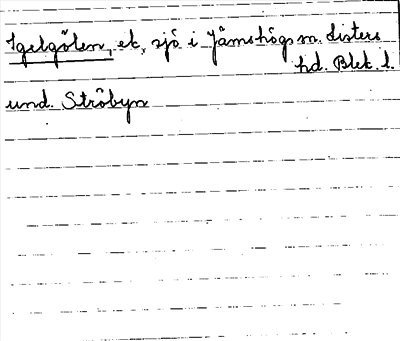 Igelgölen, ek, sjö i Jämshögs sn. Listers
hd. Blek. l.
und. Ströbyn